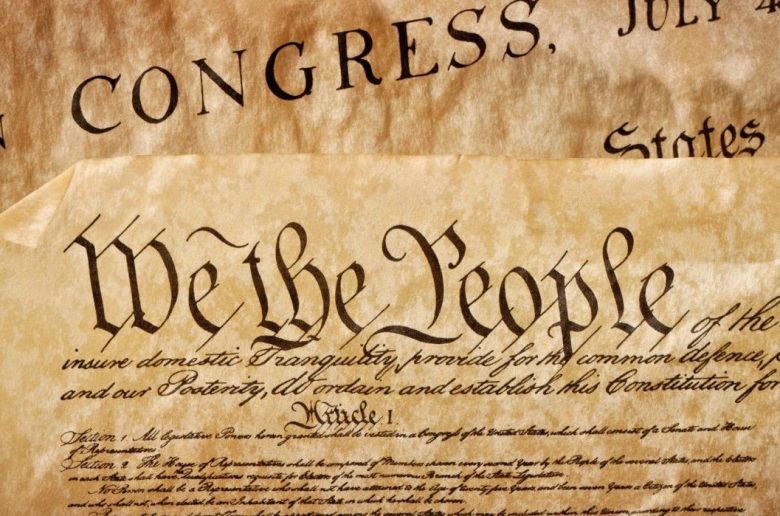 N CONGRESS, JULY 4
States
We the People of the
insure domestic Tranquility, provide for the common defence,
and our Posterity, do ordain and establish this Constitution for
Article I
Section 1. All legislative Powers herein granted shall be vested in a Congress of the United States, which shall consist of a Senate and House
of Representatives.
Section 2. The House of Representatives shall be composed of Members chosen every second Year by the People of the several States, and the Electors
in each State shall have Qualifications requisite for Electors of the most numerous Branch of the State Legislature.
No Person shall be a Representative who shall not have attained to the Age of twenty five Years, and been seven Years a Citizen of the United States,
and who shall not, when elected, be an Inhabitant of that State in which he shall be chosen.